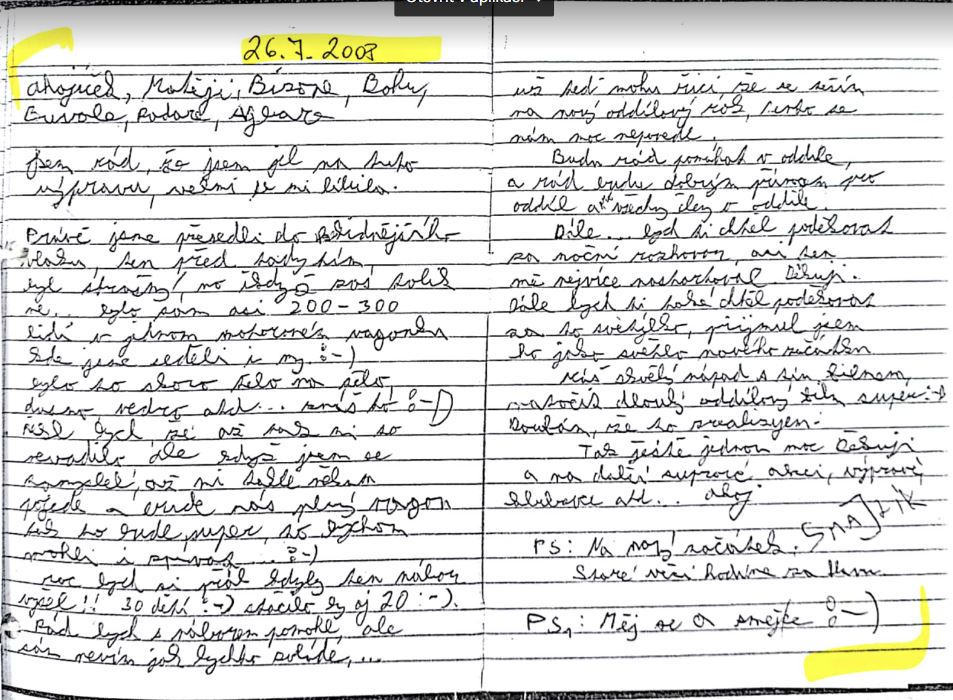 26.7.2008
Ahojííček, Matěji, Bizone, Bohy,
Euvale, Podare, Aglare
Jsem rád, že jsem jel na tuto
výpravu, velmi se mi líbila.
Právě jsme přesedli do klidnějšího
vlaku, ten před tady tím,
byl strašný, no když zas tolik
ne... bylo tam asi 200-300
lidí v jednom motorovém vagonku
kde jsme seděli i my :-)
bylo to skoro tělo na tělo,
dusno, vedro atd... znáš to :-D
řekl bych, že až tak mi to
nevadilo ale když jsem se
až mi takhle někam
pojede a bude nás plný vagon
tak to bude super, to bychom
mohli i zpívat ... :-)
moc bych si přál kdyby ten nábor
vyšel!! 30 dětí :-) stačilo by aj 20 :-).
Rád bych s náborem pomohl, ale
sám nevím jak bychto pojde, ...
už teď mohu říci, že se těším
na nový oddílový rok, tento se
nám moc nepovedl.
Budu rád pomáhat v oddíle,
a rád budu dobrým přínosem pro
oddíl a všechny členy v oddíle.
Dále... bych si chtěl poděkovat
za noční rozhovor, asi ten
mě nejvíce nastartoval. Děkuji.
Dále bych si také chtěl poděkovat
za to světýlko, přijmul jsem
to jako světlo nového začátku
Máš skvělý nápad s tím filmem,
natočit dlouhý oddílový film super :-)
Doufám, že to zrealizujem.
Tak ještě jednou moc Děkuji
a na další suprové akci, výpravě,
klubovce atd... ahoj
SMAJLÍK
PS: Na nový začátek.
Staré věci hodíme za hlavu.
PS1: Měj se a smějte :-)